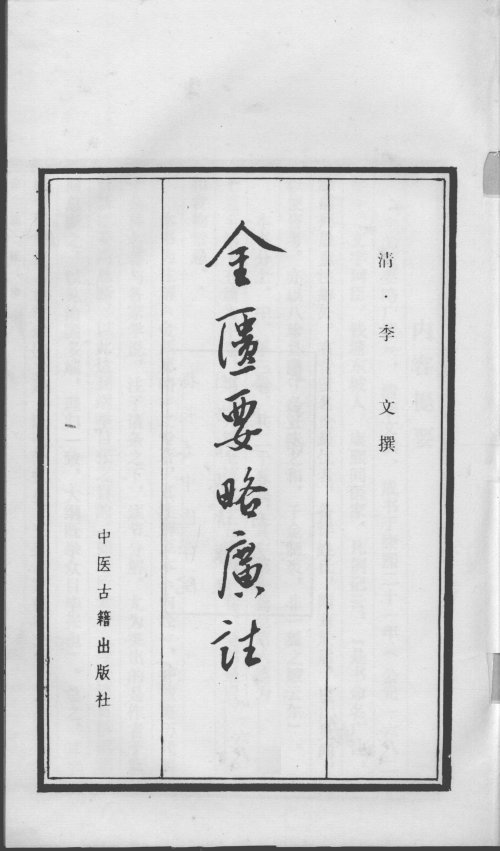 清·李文撰
金匱要略廣註
中医古籍出版社